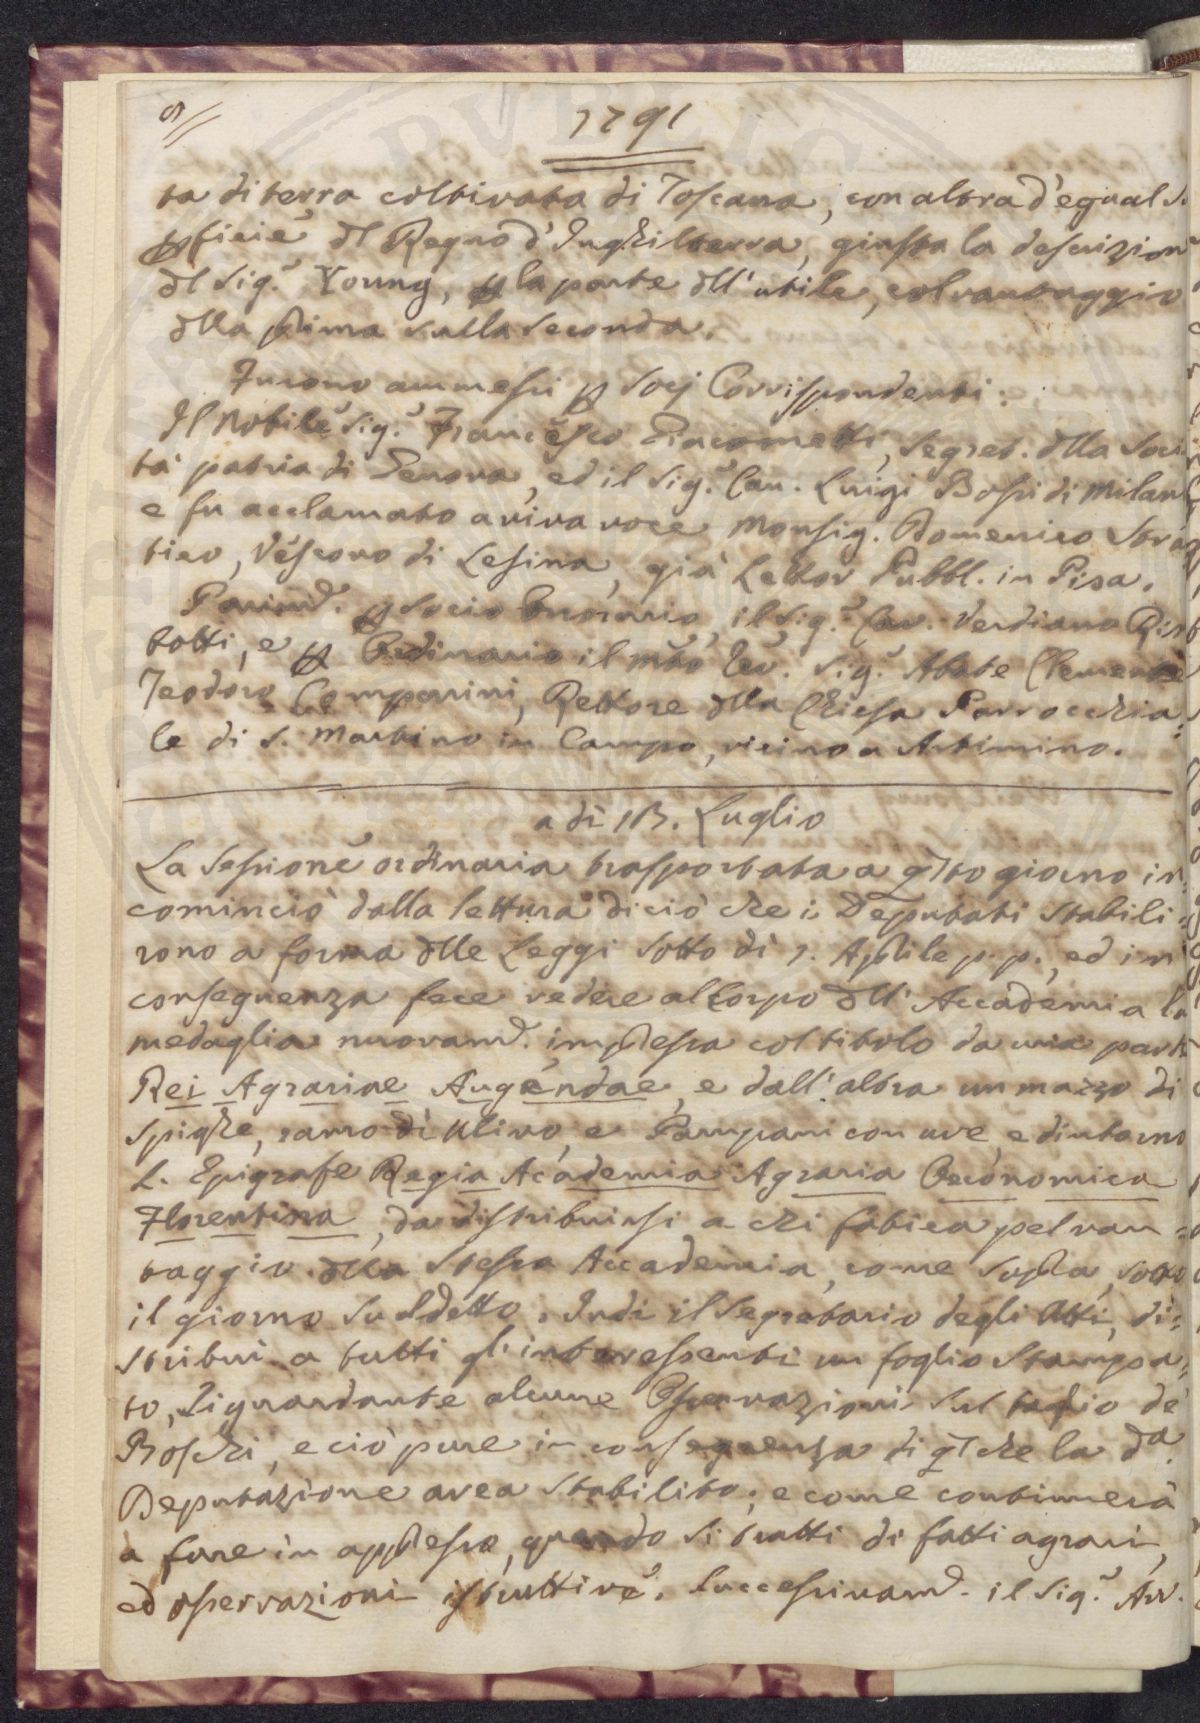 1791
ta di terra coltivata di Toscana, con altra d'egual s.
pficie dl Regno d'Inghilterra, giusta la descrizion
dl Sig.r Young, p la parte dll'utile, col vantaggio
dlla prima sulla seconda.
Furono ammessi p Socj Corrispondenti:
Il Nobile Sig.r Francesco Giacometti, Segret. dlla Soci
tà patria di Genova, ed il Sig.r Cav. Luigi Bossi di Milan
e fu acclamato a viva voce Monsig. Domenico Stra
tico, Vescovo di Lesina, già Lettor Pubbl. in Pisa.
Parimd. p Socio Onorario, il Sig.r Cav. Verdiano Rim
botti, e p Ordinario il mto Rev. Sig.r Abate Clemente
Teodoro Comparini, Rettore dlla Chiesa Parrocchia:
le di S. Martino in Campo, vicino a Artimino.
a dì 13. Luglio
La Sessione ordinaria trasportata a qsto giorno in:
cominciò dalla lettura di ciò che i Deputati stabili:
rono a forma dlle Leggi sotto dì 7. Aprile p.p., ed in
conseguenza fece vedere al Corpo dll'Accademia la
medaglia nuovamd. impressa col titolo da una parte
Rei Agrariae Augendae, e dall'altra un mazzo di
spighe, ramo di Ulivo, e Pampani con uve, e dintorno
l. Epigrafe Regia Academia Agraria Oeconomica
Florentina, da distribuirsi a chi fatica pel van:
taggio dlla stessa Accademia, come sopra, sotto
il giorno suddetto. Indi il Segretario degli Atti, di:
stribuì a tutti gl'interessenti un foglio stampa:
to, riguardante alcune Osservazioni sul taglio de'
Boschi, e ciò pure in conseguenza di q.l che la da.
Deputazione avea stabilito; e come continuerà
a fare in appresso, quando si tratti di fatti agrari,
ed osservazioni istruttive. Successivamd. il Sig.r Avv.